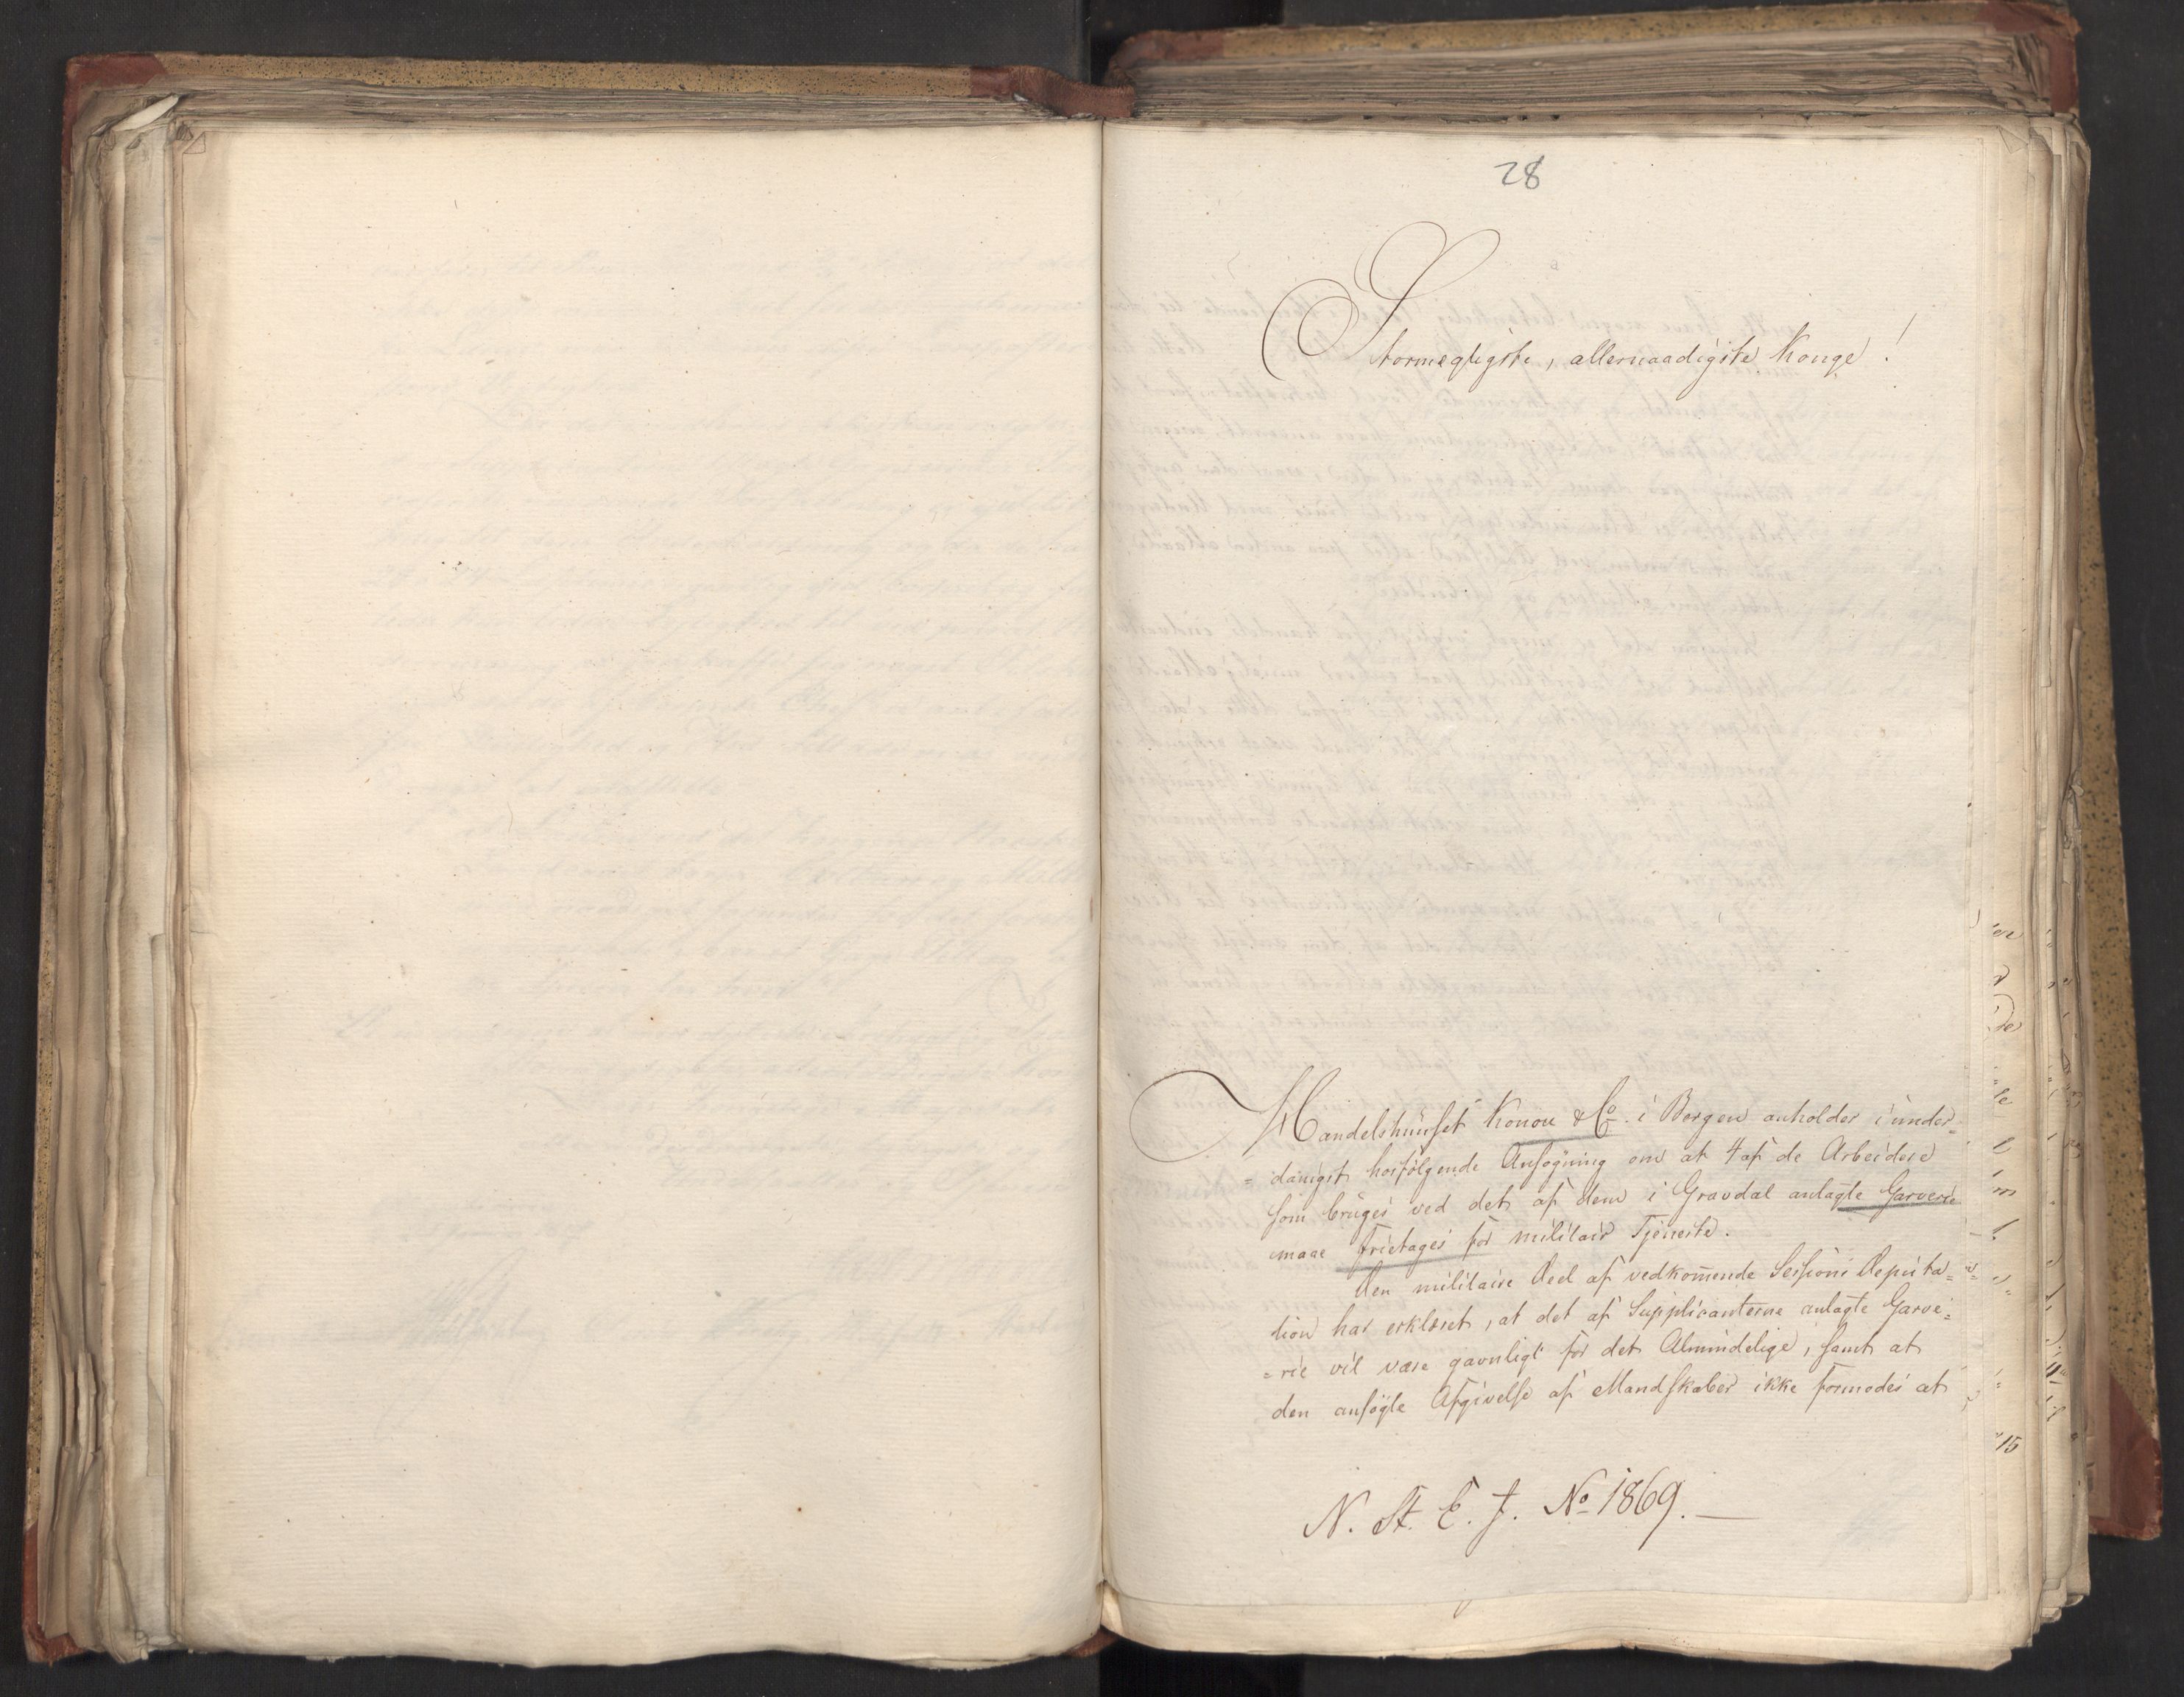 28
Stormægtigste, allernaadigste Konge!
Handelshuuset Konow & Co. i Bergen anholder i under=
=danigst hosfølgende Ansøgning om at 4 af de Arbeidere
som bruges ved det af dem i Gravdal anlagte Garverie
maae fritages for militair Tjeneste.
Den militaire Deel af vedkom̅ende Sessions Deputa=
tion har erklæret, at det af Supplicanterne anlagte Garve=
=rie vil være gavnligt for det Almindelige, samt at
den ansøgte Afgivelse af Mandskaber ikke formodes at
N. St. E. J. No 1869.